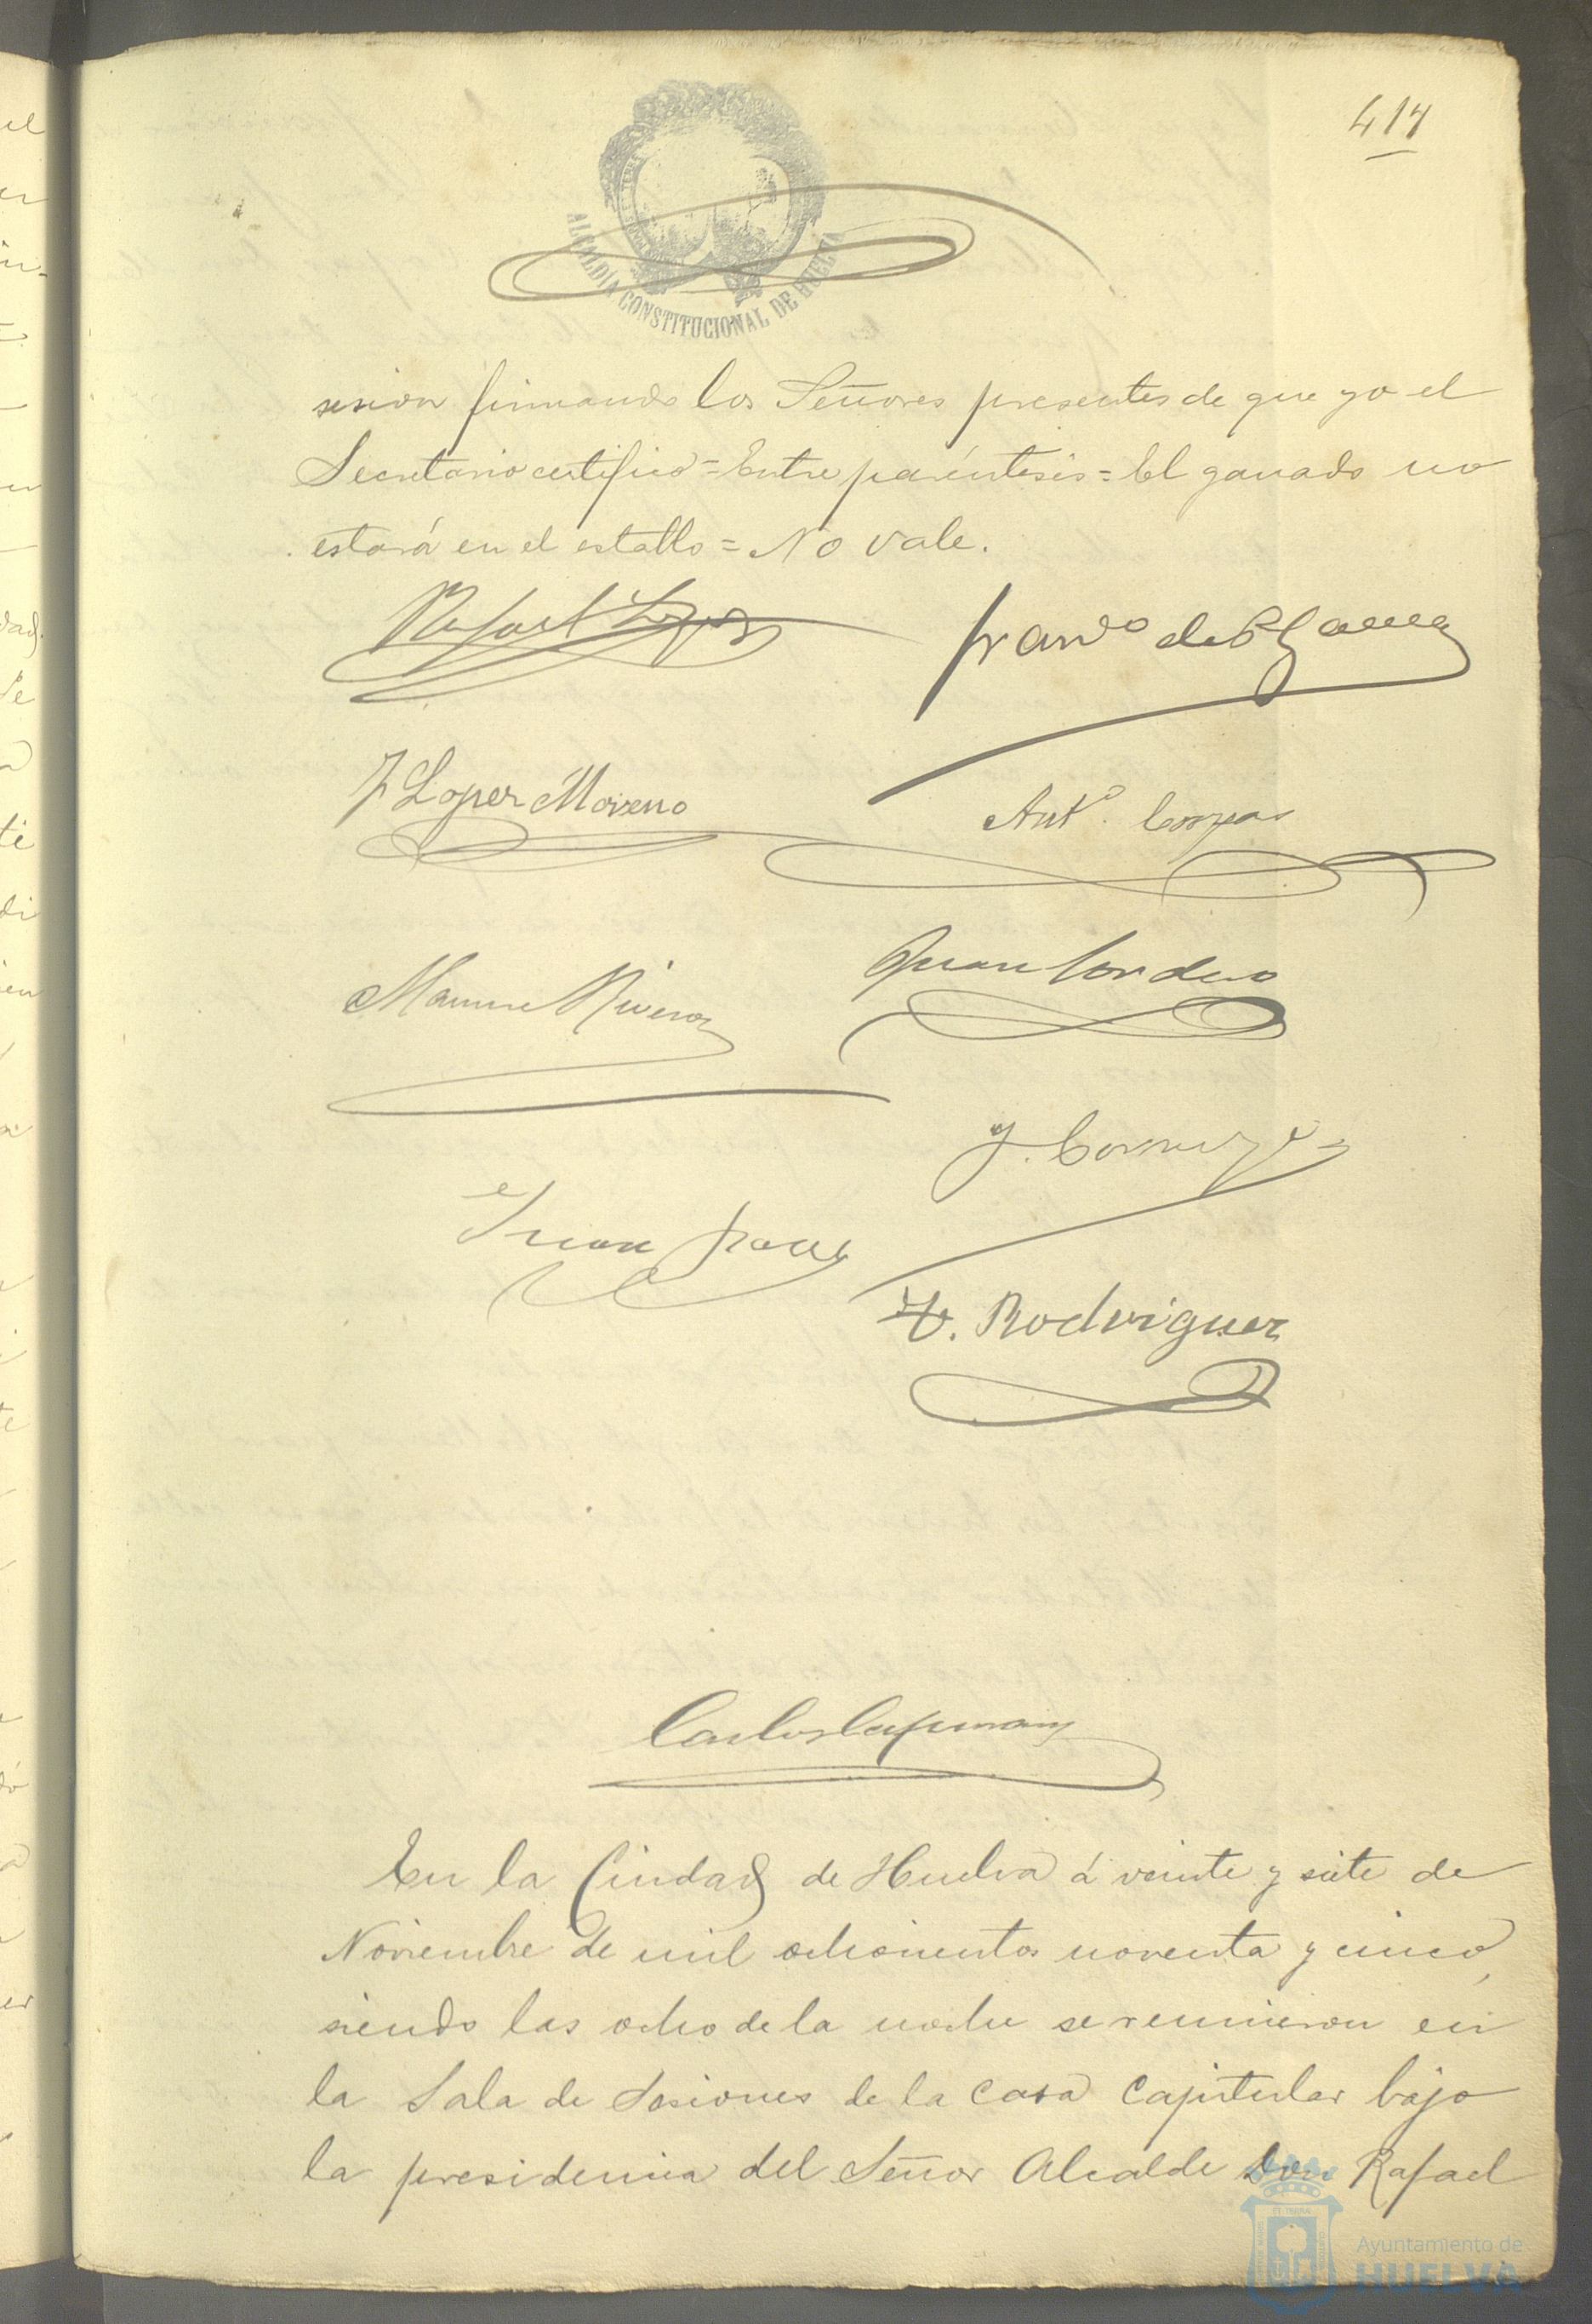 417
ALCALDÍA CONSTITUCIONAL DE HUELVA
sesion firmando los Señores presentes de que yo el
Secretario certifico = Entre paréntesis = El ganado no
estará en el establo = No vale.
Rafael Lopez
Franco de P. Garcia
J Lopez Moreno
Anto. Corpas
Manuel Rivero
Juan Cordero
J.
Juan
F. Rodriguez
Carlos
En la Ciudad de Huelva á veinte y siete de
Noviembre de mil ochocientos noventa y cinco,
siendo las ocho de la noche se reunieron en
la Sala de Sesiones de la Casa Capitular bajo
la presidencia del Señor Alcalde Don Rafael
Ayuntamiento de
HUELVA